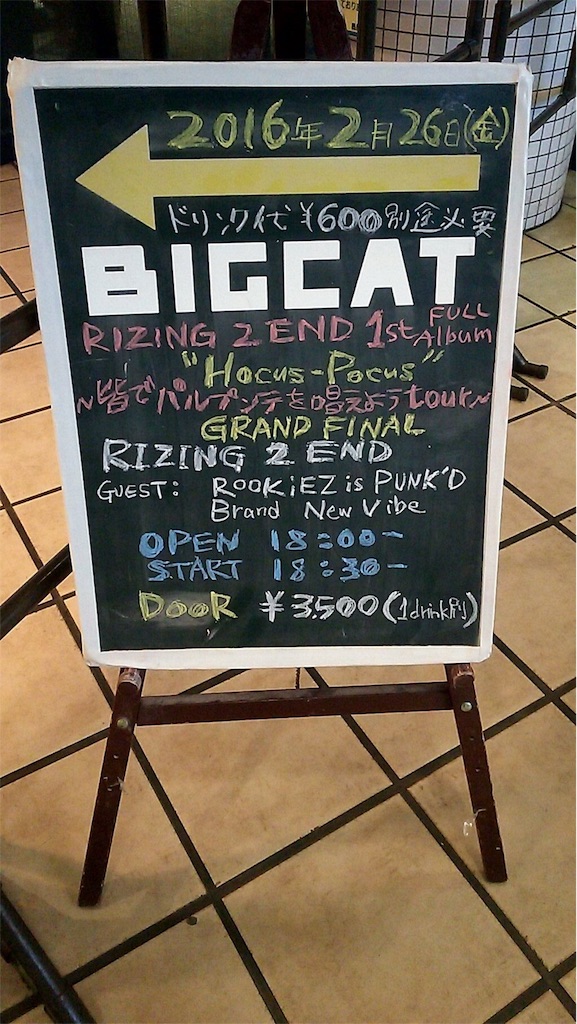 2016年2月26日(金)
ドリンク代 ¥600 別途必要
BIGCAT
RIZING 2 END 1st FULL Album
"Hocus-Pocus"
~皆でパルプンテを唱えようtour~
GRAND FINAL
RIZING 2 END
GUEST: ROOKiEZ is PUNK'D
Brand New Vibe
OPEN 18:00-
START 18:30-
DOOR ¥3,500(1drink別)